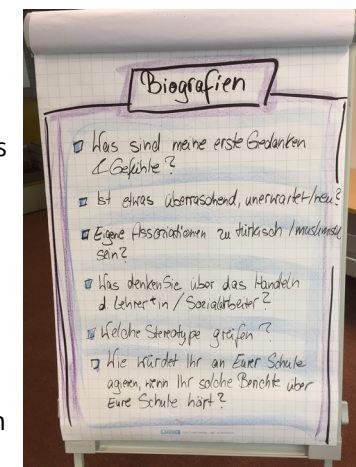 Biografien
Was sind meine erste Gedanken
& Gefühle?
Ist etwas überraschend, unerwartet/neu?
Eigene Assoziationen zu türkisch / muslimisch
sein?
Was denken Sie über das Handeln
d. Lehrer*in / Sozialarbeiter?
Welche Stereotype greifen?
Wie würdet Ihr an Eurer Schule
agieren, wenn Ihr solche Berichte über
Eure Schule hört?